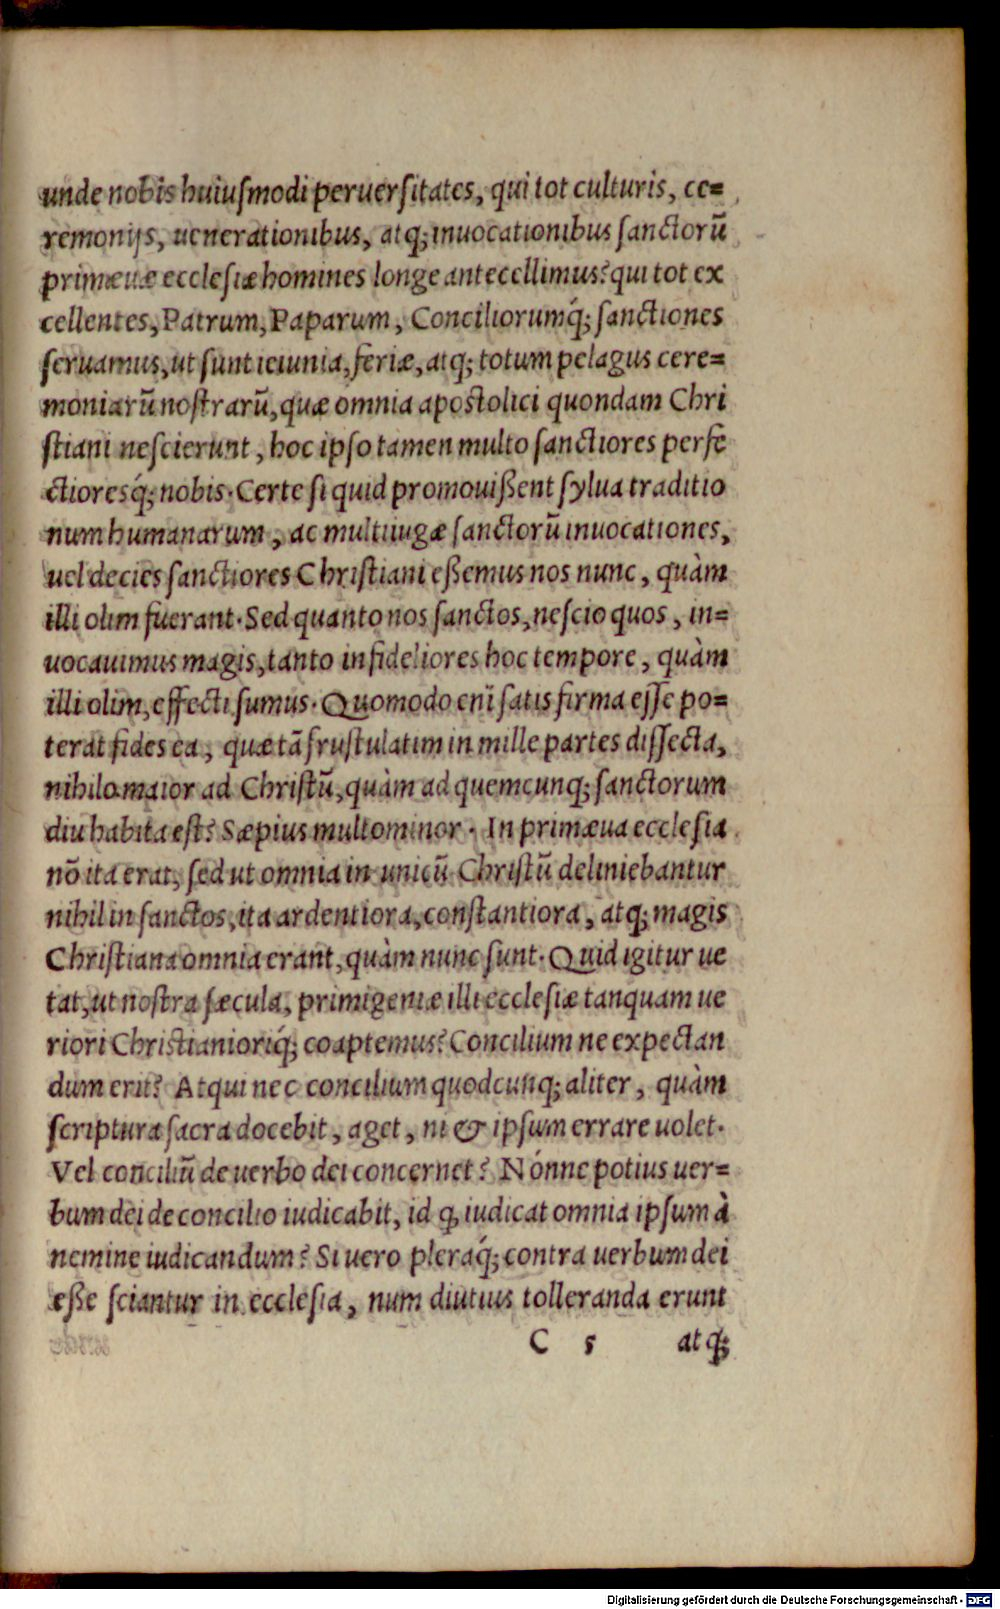 unde nobis huiusmodi peruersitates, qui tot culturis, ce=
remonijs, uenerationibus, atq; inuocationibus sanctorũ
primæuæ ecclesiæ homines longe antecellimus? qui tot ex
cellentes, Patrum, Paparum, Conciliorumq́; sanctiones
seruamus, ut sunt ieiunia, feriæ, atq; totum pelagus cere=
moniarũ nostrarũ, quæ omnia apostolici quondam Chri
stiani nescierunt, hoc ipso tamen multo sanctiores perfe
ctioresq́; nobis. Certe si quid promouißent sylua traditio
num humanarum, ac multiiugæ sanctorũ inuocationes,
uel decies sanctiores Christiani eßemus nos nunc, quàm
illi olim fuerant. Sed quanto nos sanctos, nescio quos, in=
uocauimus magis, tanto infideliores hoc tempore, quàm
illi olim, effecti sumus. Quomodo enĩ satis firma esse po=
terat fides ea, quæ tã frustulatim in mille partes dissecta,
nihilo maior ad Christũ, quàm ad quemcunq; sanctorum
diu habita est? Sæpius multo minor. In primæua ecclesia
nõ ita erat, sed ut omnia in unicũ Christũ deliniebantur
nihil in sanctos, ita ardentiora, constantiora, atq; magis
Christiana omnia erant, quàm nunc sunt. Quid igitur ue
tat, ut nostra sæcula, primigeniæ illi ecclesiæ tanquam ue
riori Christianioriq́; coaptemus? Concilium ne expectan
dum erit? Atqui nec concilium quodcunq; aliter, quàm
scriptura sacra docebit, aget, ni & ipsum errare uolet.
Vel conciliũ de uerbo dei concernet? Nónne potius uer=
bum dei de concilio iudicabit, id q̃ iudicat omnia ipsum à
nemine iudicandum? Si uero pleraq́; contra uerbum dei
eße sciantur in ecclesia, num diutius tolleranda erunt
C 5 atq;
Digitalisierung gefördert durch die Deutsche Forschungsgemeinschaft - DFG